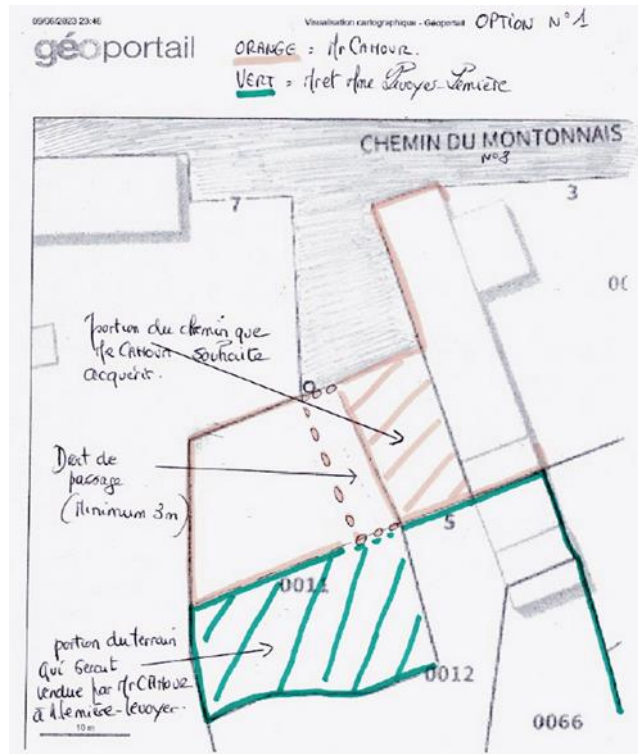 09/06/2023 23:46
Visualisation cartographique - Géoportail
OPTION N°1
géoportail
ORANGE = Mr CAHOUR.
VERT = Mr et Mme Levoyer-Lemière
CHEMIN DU MONTONNAIS
N°8
7
3
portion du chemin que
Mr CAHOUR souhaite
acquérir.
Droit de
passage
(Minimum 3m)
5
0011
portion du terrain
qui serait
vendue par Mr CAHOUR
à Lemière-Levoyer.
0012
10 m
0066